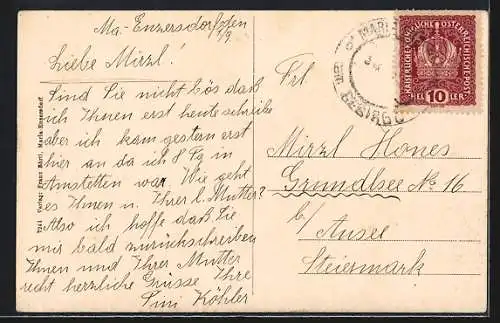 Ma-Enzersdorf den
1/9
Liebe Mirzl!
Sind Sie nicht bös daß
ich Ihnen erst heute schreibe
aber ich kam gestern erst
hier an da ich 8 Tg in
Amstetten war. Wie geht
es Ihnen u. Ihrer l. Mutter?
Also ich hoffe daß Sie
mir bald zurückschreiben
Ihnen und Ihrer Mutter
recht herzliche Grüsse Ihre
Sini Köhler
7241 Verlag: Franz Härtl, Maria-Enzersdorf
KAISERLICHE KÖNIGLICHE ÖSTERREICHISCHE POST
HELLER
10
MARIA
GEBIRGE
Frl
Mirzl Hones
Grundlsee No 16
b/
Aussee
Steiermark